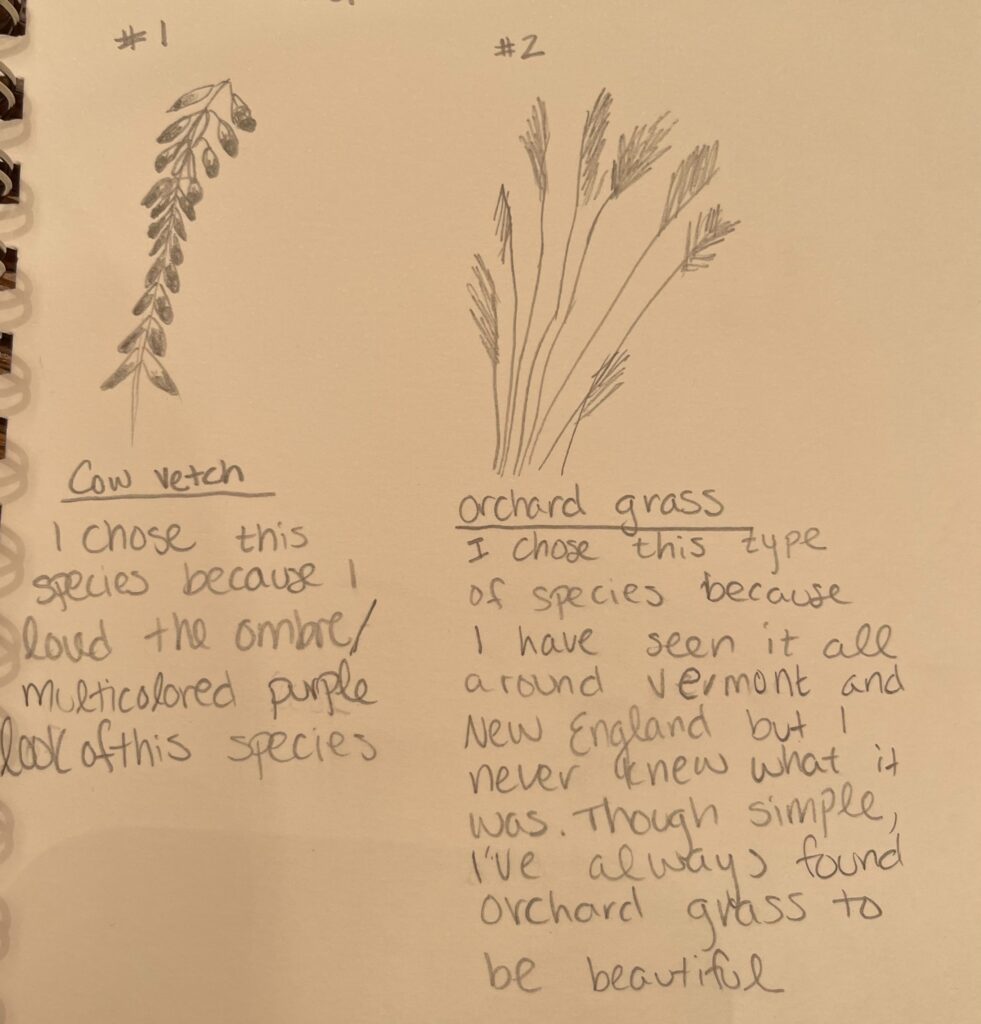 #1
Cow vetch
I chose this
species because I
loved the ombre/
multicolored purple
look of this species
#2
orchard grass
I chose this type
of species because
I have seen it all
around Vermont and
New England but I
never knew what it
was. Though simple,
I've always found
orchard grass to
be beautiful